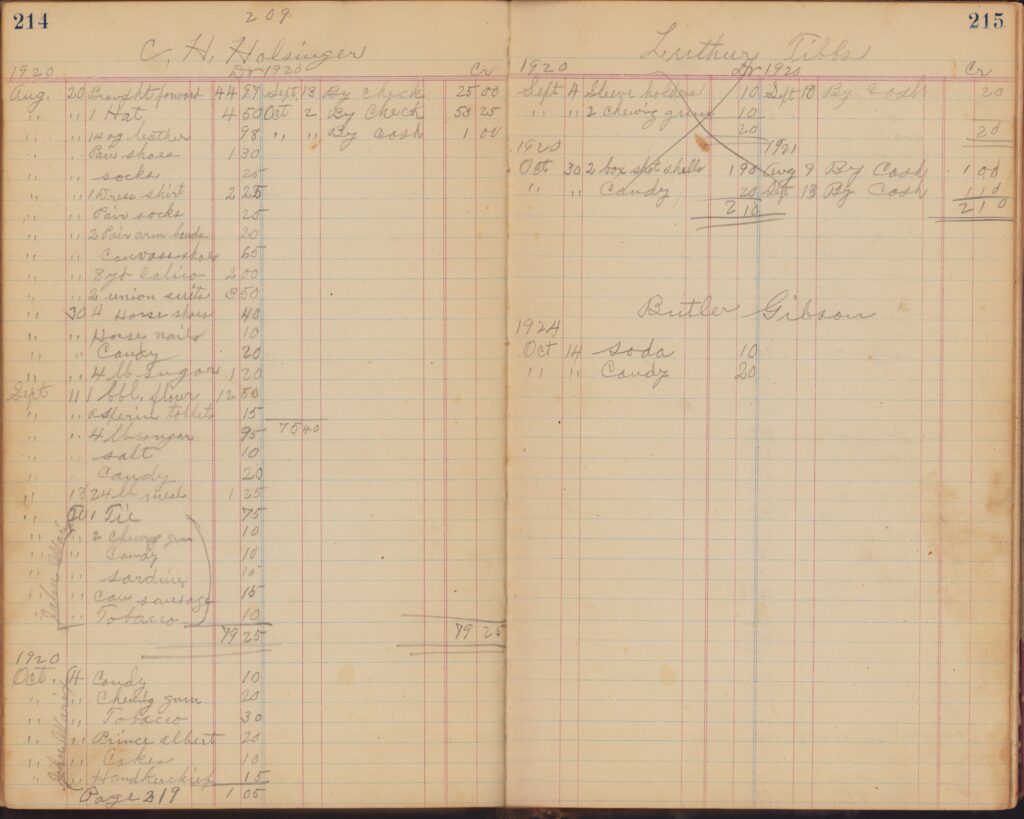 214
209
C. H. Holsinger
1920 Dr 1920 Cr
Aug. 20 Brought forward 44 97 Sept. 13 By Check 25 00
" " 1 Hat 4 50 Oct 2 By Check 53 25
" " 14 og leather 98 " " By Cash 1 00
" " Pair shoes 1 30
" " socks 25
" " 1 Dress shirt 2 25
" " Pair socks 25
" " 2 Pair arm bands 20
" " Canvass shoes 65
" " 8 yd Calico 2 00
" " 2 union suits 3 50
" 30 4 Horse shoes 40
" " Horse nails 10
" " Candy 20
" " 4 lb sugar 1 20
Sept 11 1 bbl. flour 12 50
" " asperin tablets 15
75 40
" " 4 lb sugar 95
" " salt 10
" Candy 20
" 18 24 lb meal 1 25
" 20 1 Tie 75
" " 2 Chewing gum 10
" " Candy 10
" " sardines 15
" " Can sausage 15
" " Tobacco 10
79 25 79 25
1920
Oct. 4 Candy 10
" " Chewing gum 20
" " Tobacco 30
" " Prince albert 20
" " Cakes 10
" " Handkerchief 15
Page 219 1 05
John
John
215
Luthur Tibbs
1920 Dr 1920 Cr
Sept 4 Sleeve holders 10 Sept 18 By Cash 20
" " 2 Chewing gum 10
20 20
1920 1921
Oct 30 2 box shot shells 1 90 Aug 9 By Cash 1 00
" " Candy 20 Sept 13 By Cash 1 10
2 10 2 10
Butler Gibson
1924
Oct 14 soda 10
" " Candy 20